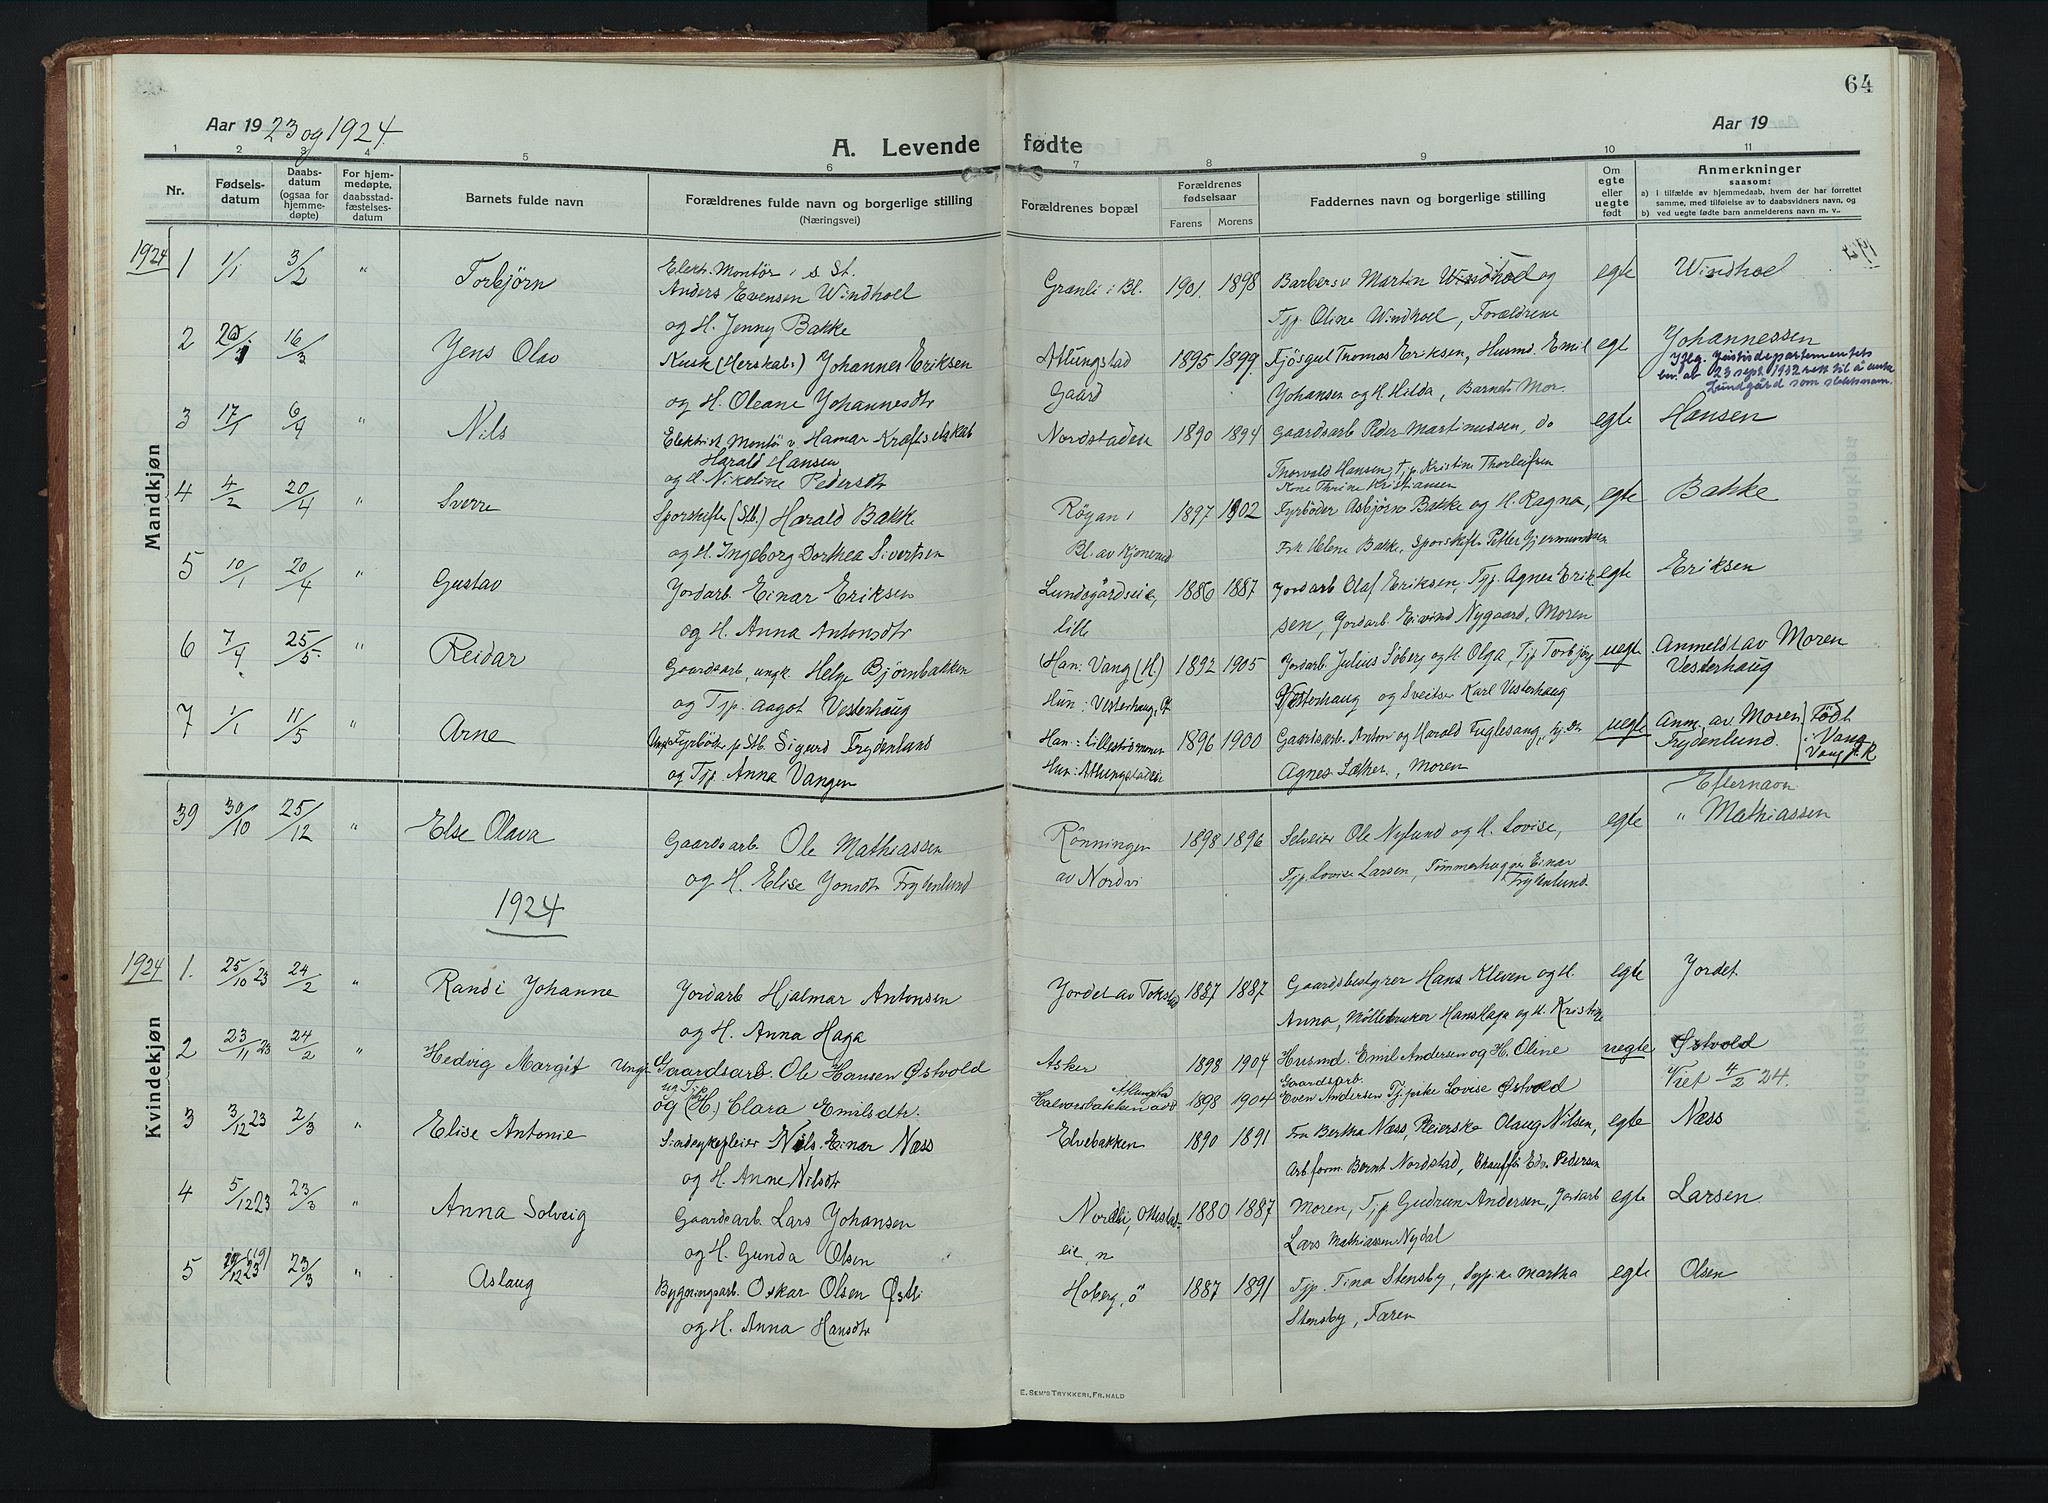 64
Aar 19 23 og 1924.
A. Levende fødte
Aar 19
1 2 3 4 5 6 7 8 9 10 11
Nr.
Fødsels-
datum
Daabs-
datum
(ogsaa for
hjemme-
døpte)
For hjem-
medøpte,
daabsstad-
fæstelses-
datum
Barnets fulde navn
Forældrenes fulde navn og borgerlige stilling
(Næringsvei)
Forældrenes bopæl
Forældrenes
fødselsaar
Farens Morens
Faddernes navn og borgerlige stilling
Om
egte
eller
uegte
født
Anmerkninger
saasom:
a) i tilfælde av hjemmedaab, hvem der har forrettet
samme, med tilføielse av to daabsvidners navn, og
b) ved uegte fødte barn anmelderens navn m. v..
Mandkjøn
1924 1 1/1 3/2 " Torbjørn Elektr. Montör i s St. Grænli i Bl. 1901. 1898 Barbersv Martin Windhoel og egte Windhoel
Anders Evensen Windhoel Tjp. Oline Windhoel, Forældrene
og H. Jenny Bakke
2 20/1 16/3 Jens Olav Kusk (Herskabs:) Johannes Eriksen Atlungstad 1895 1899 Fjøsgut Thomas Eriksen, Husmd. Emil egt Johannessen
og H. Oleane Johannesdtr Gaard Johansen og H. Hilda, Barnets Mor.
Iflg. Justisdepartementets
bev. ab 23 sept. 1932 rett til å anta
Lundgård som slektsnavn.
3 17/1 6/4 " Nils Elektrist Montø v Hamar Kraftselskab Nordstadeie 1890 1894 Gaardsarb Peder Martinussen, do egte Hansen
Harald Hansen Thorvald Hansen, Tjp Kristine Thorleifsen
og H. Nikoline Pedersdtr Kone Thrine Kristiansen
4 4/2 20/4 " Sverre Sporskifter (Stb.) Harald Bakke Røgan i 1897 1902 Fyrböder Asbjørn Bakke og H. Ragna, egte Bakke
og H. Ingeborg Dorthea Sivertsen Bl. av Kjonerud Frk Helene Bakke, Sporskifte Petter Gjermundsen
5 10/1 20/4 " Gustav Jordarb. Einar Eriksen Lundsgårdseie, 1886 1887 Jordarb Olaf Eriksen, Tjp. Agnes Erik egte Eriksen
og H. Anna Antonsdtr lille sen, Jordarb. Eivind Nygaard, Moren
6 7/4 25/5 " Reidar Gaardsarb, ungk. Helge Bjørnbakken Han: Vang (H.) 1892 1905 Jordarb. Julius Söberg og H. Olga, Tjp Torbjørg uegte Anmeldt av Moren
og Tjp. Aagot Vesterhaug Hun: Vesterhaug, Vesterhaug og Sveitser Karl Vesterhaug Vesterhaug
7 1/1 11/5 " Arne Ungk Fyrböder p Stb. Sigurd Frydenlund Han: Lillestrømmen 1896 1900 Gaardsarb. Anton og Harald Fuglesang, uegte Anm. av Moren Født
og Tjp Anna Vangen Hun: Atlungstadeie Agnes Sæther, Moren Frydenlund. i Vang
Vang p. R
39 30/10 25/12 " Else Olava Gaardsarb Ole Mathiassen Rönningen 1898 1896 Selveier Ole Nylund og H. Lovise, egte Efternavn
" Mathiassen
og H. Elise Jonsdtr Frydenlund av Nordvi Tjp. Lovise Larsen, Tömmerhugger Einar
Frydenlund.
1924
Kvindekjøn
1924 1. 25/10 23 24/2 " Randi Johanne Jordarb Hjalmar Antonsen Jordet av Tokstad 1887 1887 Gaardsbestyrer Hans Kleven og H. egte Jordet
og H. Anna Haga Anna, Møllebruker Hans Haga og H. Kristine
2 23/11 23 24/2 " Hedvig Margit Ungk Gaardsarb. Ole Hansen Østvold Asker 1898 1904 Husmd. Emil Andersen og H. Oline uegte Østvold
ug Tjp Gaardsarb. Viet 4/2 24.
og (H.) Clara Emilsdtr. Halvorsbakken Atlungstad 1898 1904 Even Andersen Tj.pike Lovise Østvold
3 3/12 23 2/3 " Elise Antonie Sindsykepleier Nils Einar Næss Elvebakken 1890 1891 Fru Bertha Næss, Pleierske Olaug Nilsen, egte Næss
og H. Anne Nilsdtr Arbform. Bernt Nordstad, Chauffør Edv. Pedersen
4 5/12 23 23/3 " Anna Solveig Gaardsarb. Lars Johansen Nordli, Ottestad- 1880 1887 Moren, Tjp Gudrun Andersen, Jordarb egte Larsen
og H. Gunda Olsen eie, n Lars Mathiassen Nydal
5 20/12 23 (19) 23/3 " Aslaug Bygningsarb. Oskar Olsen Østli Hoberg, ö 1887 1891 Tjp. Tina Stensby, Sypike Martha egte Olsen
og H. Anna Hansdtr Stensby, Faren
E. SEM'S TRYKKERI, FR.HALD